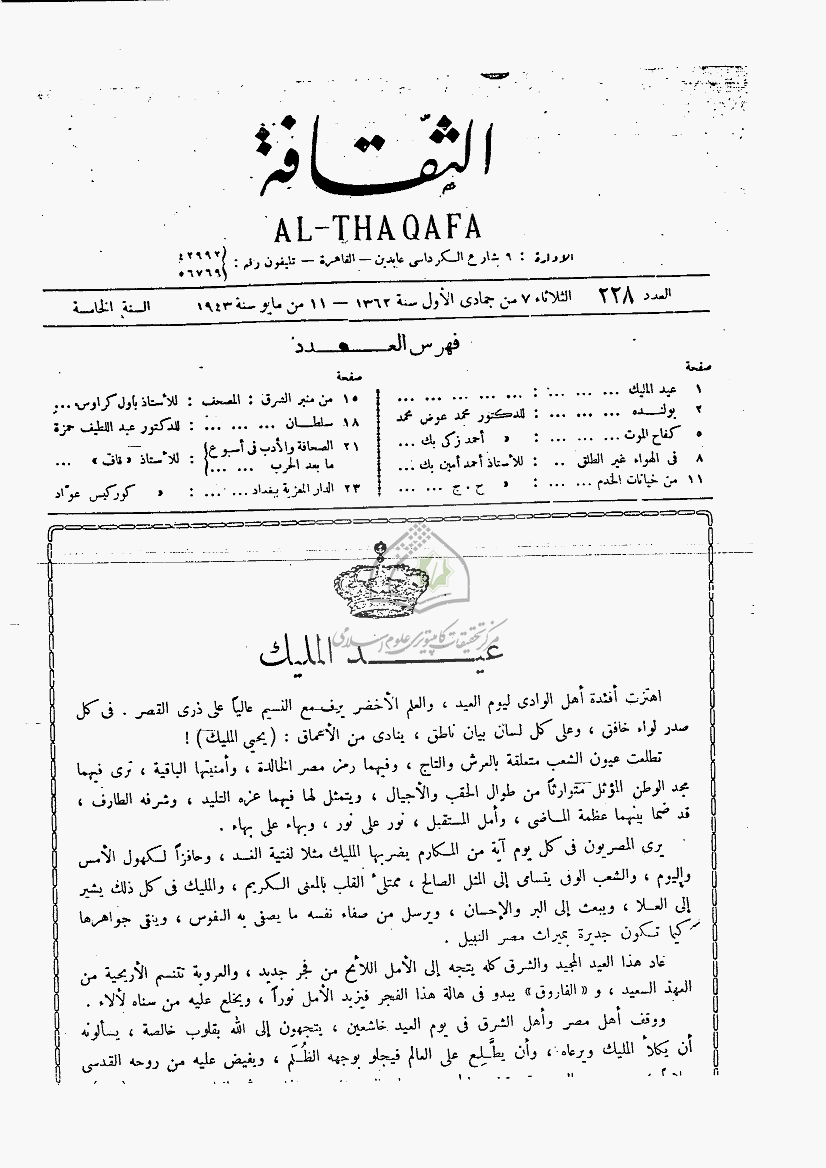 الثقافة
AL-THAQAFA
الادارة : ٩ شارع الكرداسى عابدين – القاهرة – تليفون رقم : ٤٢٩٩٢ ٥٦٧٦٩
العدد ٢٢٨ الثلاثاء ٧ من جمادى الأول سنة ١٣٦٢ – ١١ من مايو سنة ١٩٤٣ السنة الخامسة
فهرس العـــدد
صفحة
١ عيد المليك ... ... ... : ... ... ... ... ...
٢ بولنـده ... ... ... : للدكتور محمد عوض محمد
٥ كفاح الموت ... ... ... : » أحمد زكى بك ...
٨ فى الهواء غير الطلق .. : للأستاذ أحمد أمين بك ...
١١ من خيانات الخدم ... ... : » ح . ج ... ...
صفحة
١٥ من منبر الشرق : المصحف : للأستاذ باول كراوس ...
١٨ سلطـان ... ... ... : للدكتور عبد اللطيف حمزة
٢١ الصحافة والأدب فى أسبوع : للأستاذ « قاف » ...
ما بعد الحرب ... ...
٢٣ الدار المعزية ببغداد ... ... : » كوركيس عواد
مركز تحقيقات كامپيوترى علوم اسلامى
عيــــد المليك
اهتزت أفئدة أهل الوادى ليوم العيد ، والعلم الأخضر يرف مع النسيم عالياً على ذرى القصر . فى كل
صدر لواء خافق ، وعلى كل لسان بيان ناطق ، ينادى من الأعماق : ( يحيى المليك ) !
تطلعت عيون الشعب متعلقة بالعرش والتاج ، وفيهما رمز مصر الخالدة ، وأمنيتها الباقية ، ترى فيهما
مجد الوطن المؤثل متوارثاً من طوال الحقب والأجيال ، ويتمثل لها فيهما عزه التليد ، وشرفه الطارف ،
قد ضما بينهما عظمة المـاضى ، وأمل المستقبل ، نور على نور ، وبهاء على بهاء .
يرى المصريون فى كل يوم آية من المـكارم يضربها المليك مثلا لفتية الغـد ، وحافزاً لـكهول الأمس
واليوم ، والشعب الوفى يتسامى إلى المثل الصالح ، ممتلىء القلب بالمعنى الكريم ، والمليك فى كل ذلك يشير
إلى العـلا ، ويبعث إلى البر والإحسان ، ويرسل من صفاء نفسه ما يصفى به النفوس ، وينقى جواهرها
كيما تـكون جديرة بميراث مصر النبيل .
عاد هذا العيد المجيد والشرق كله يتجه إلى الأمل اللائح من فجر جديد ، والعروبة تتنسم الأريحية من
العهد السعيد ، و « الفاروق » يبدو فى هالة هذا الفجر فيزيد الأمل نوراً ، ويخلع عليه من سناه لألاء .
ووقف أهل مصر وأهل الشرق فى يوم العيد خاشعين ، يتجهون إلى الله بقلوب خالصة ، يسألونه
أن يكلأ المليك ويرعاه ، وأن يطَّلِع على العالم فيجلو بوجهه الظُلَم ، ويفيض عليه من روحه القدسى